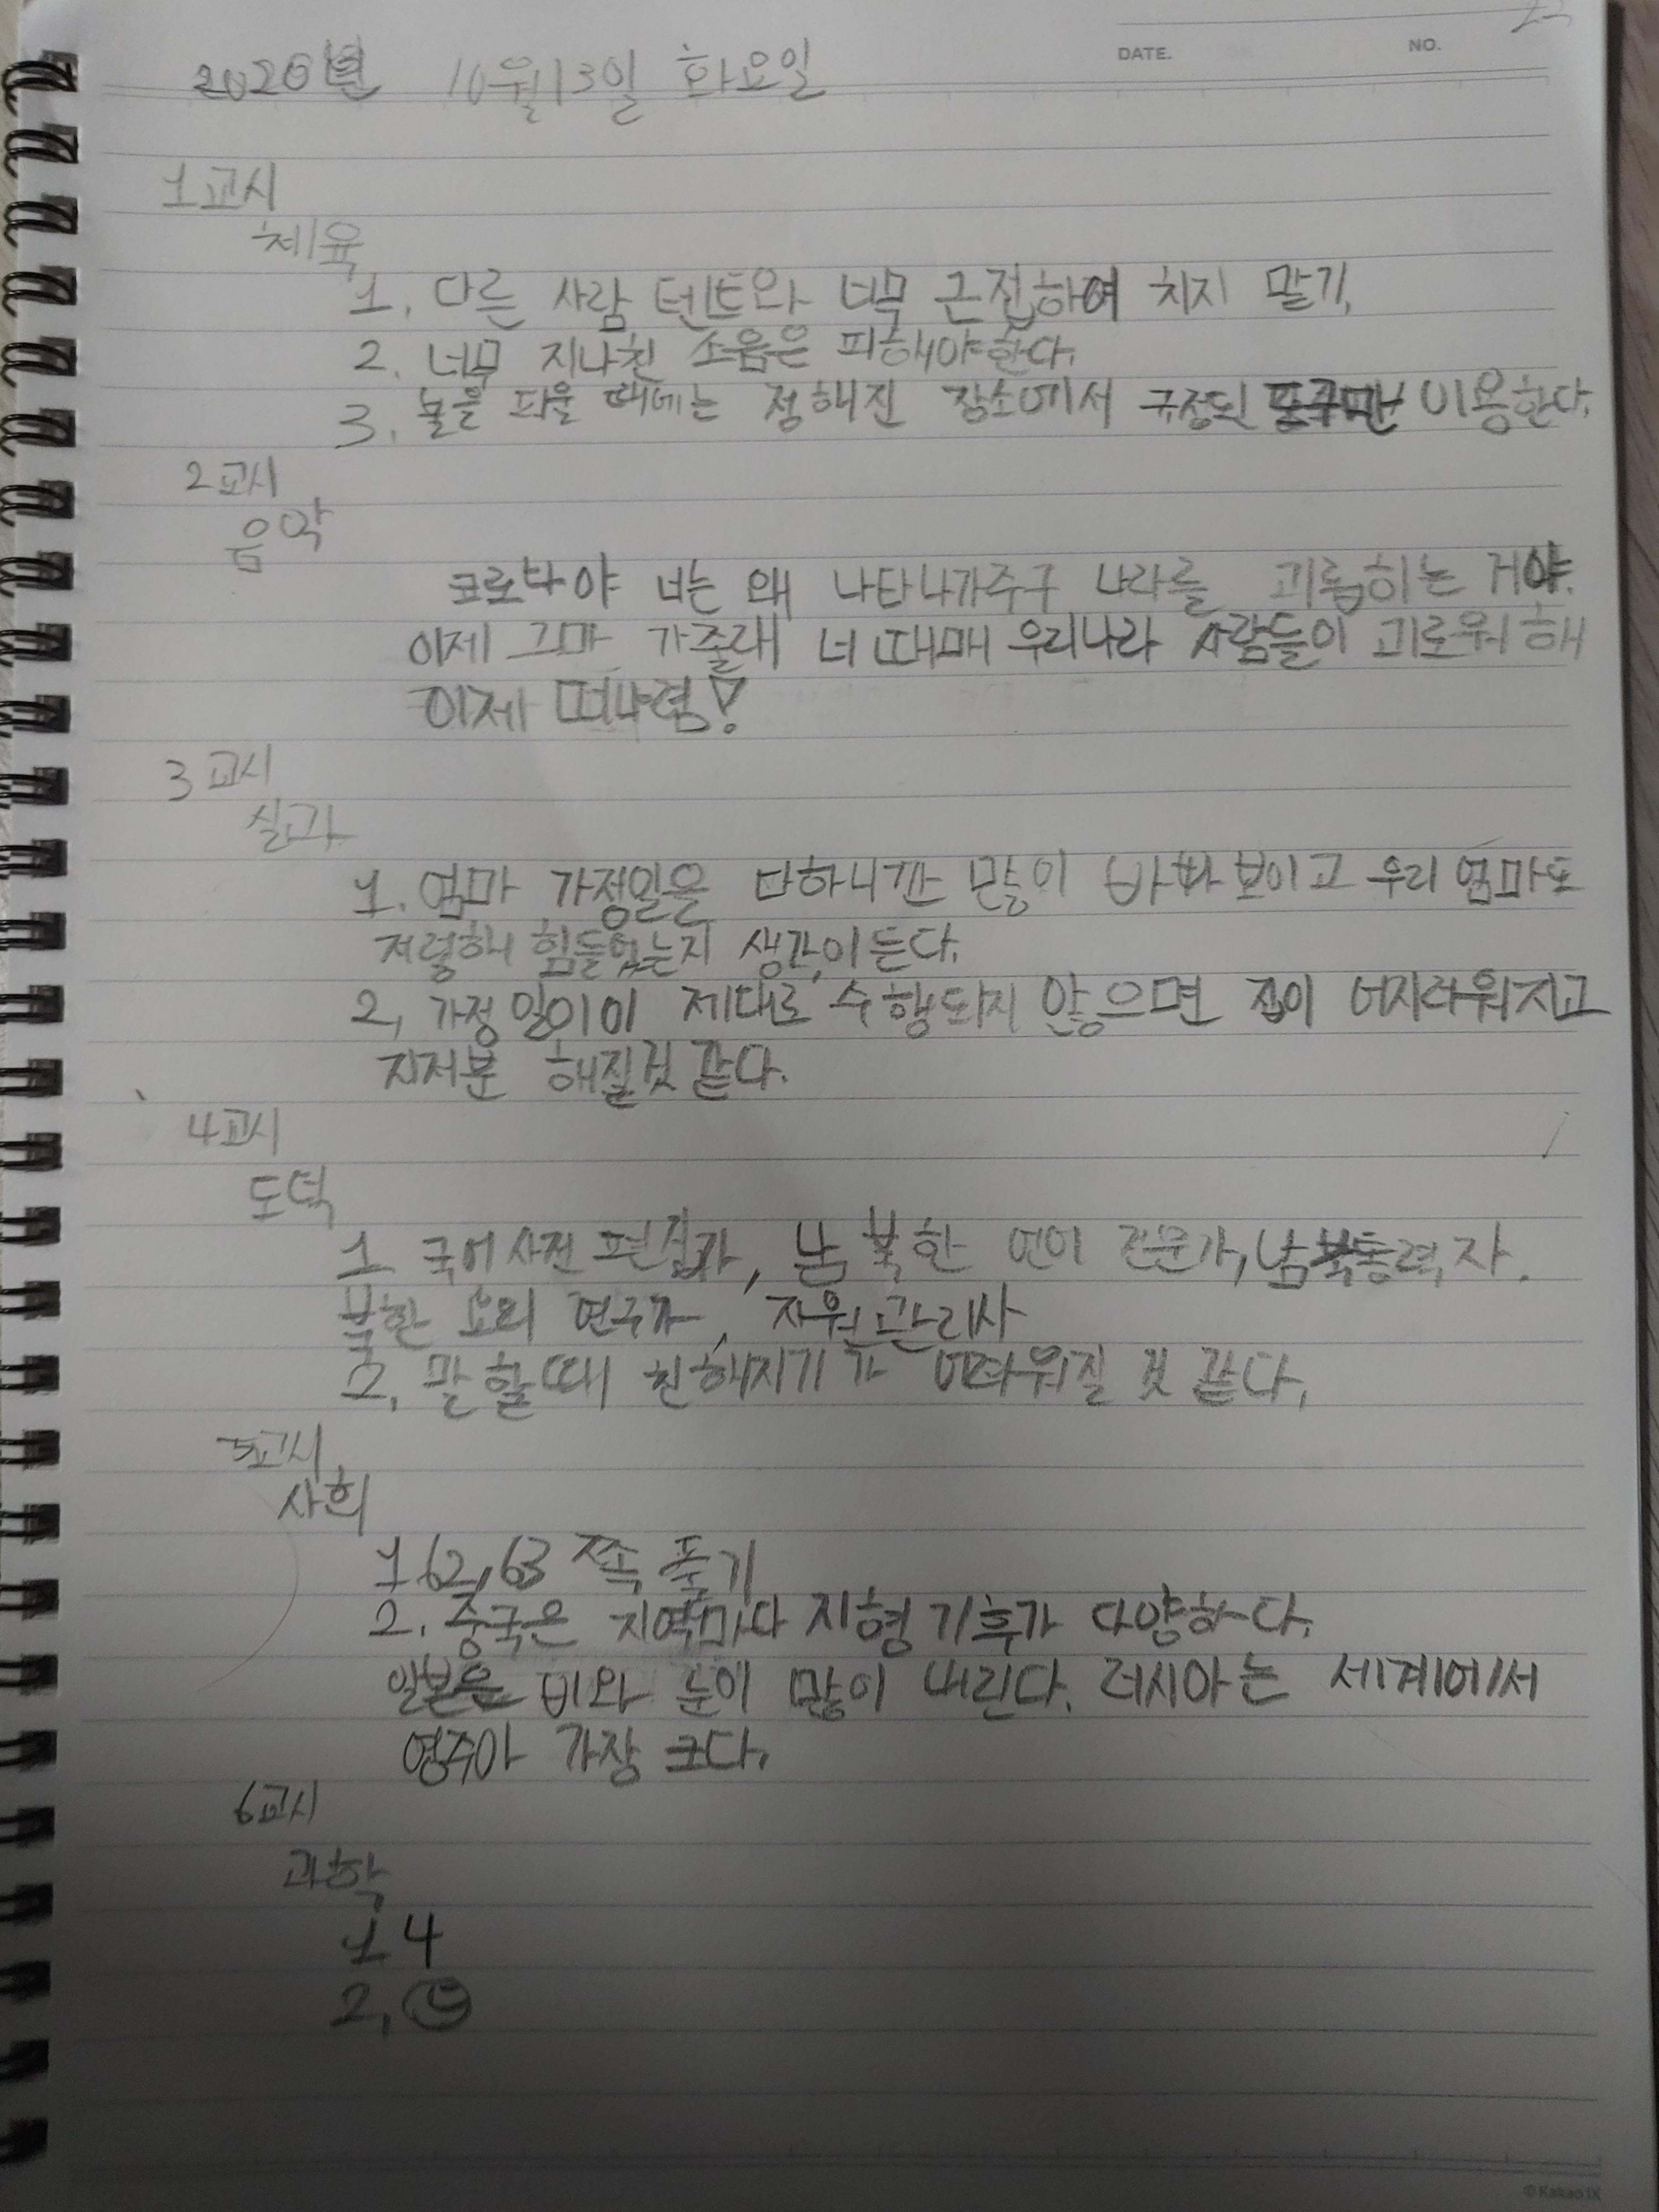 DATE.
NO.
2020년 10월13일 화요일
1교시
체육
1. 다른 사람 텐트와 너무 근접하여 치지 말기.
2. 너무 지나친 소음은 피해야한다.
3. 불을 피울 때에는 정해진 장소에서 규정된 이용한다.
2교시
음악
코로나야 너는 왜 나타나가주구 나라를 괴롭히는 거야.
이제 그마 가줄래 너 때매 우리나라 사람들이 괴로워 해
이제 떠나렴!
3교시
실과
1. 엄마 가정일을 다하니깐 많이 바빠 보이고 우리 엄마도
저렇해 힘들었는지 생각이 든다.
2. 가정일이 제대로 수행되지 않으면 집이 어지러워지고
지저분 해질것 같다.
4교시
도덕
1. 국어사전 편집가, 남북한 언어 전문가, 남북통력자.
북한 요리 연구가, 자원관리사
2. 말할때 친해지기가 어려워질 것 같다.
5교시
사회
1 62,63 쪽 풀기
2. 중국은 지역마다 지형 기후가 다양하다.
일본은 비와 눈이 많이 내린다. 러시아는 세계에서
영주아 가장 크다.
6교시
과학
1 4
2.
© Kakao IX